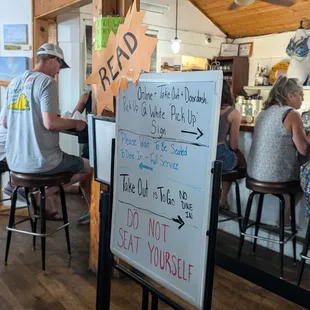 READ
Online - Take Out - Doordash
Pick Up @ White Pick Up
Sign
Please Wait To Be Seated
To Dine In - Full Service
Take Out Is To Go
NO
DINE
IN
DO NOT
SEAT YOURSELF